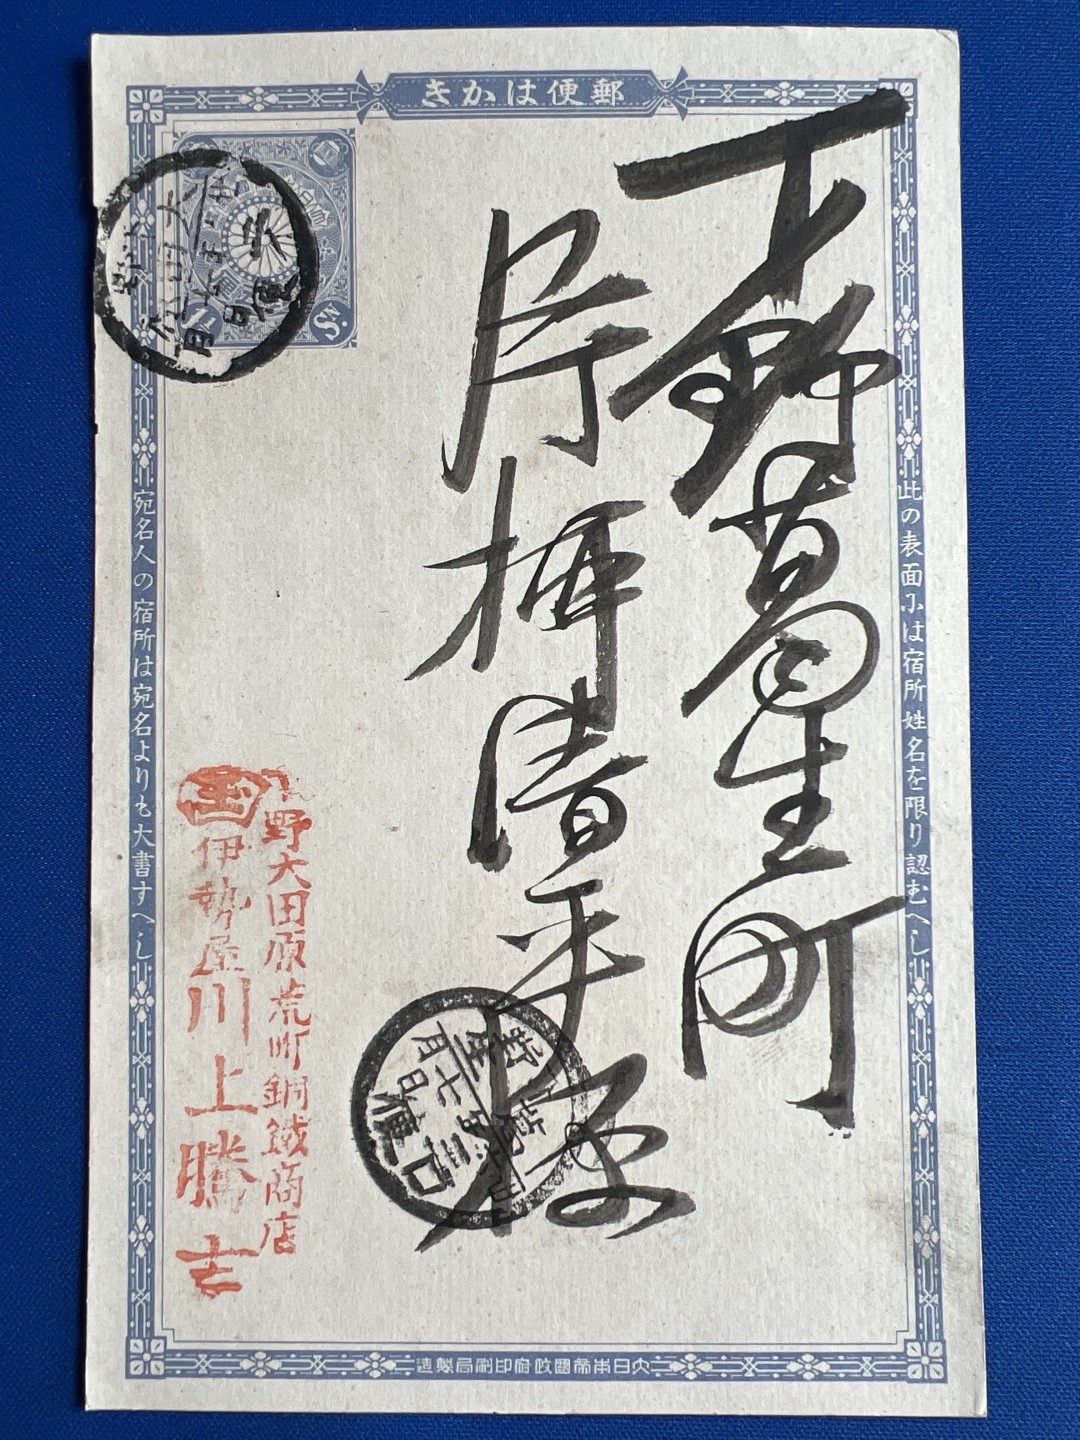 郵便はかき
此の表面には宿所姓名を限り認むへし
下野葛生町
片柳清平様
下野大田原荒町銅鐵商店
伊勢屋川上勝吉
宛名人の宿所は宛名よりも大書すへし
大日本帝國政府印刷局製造